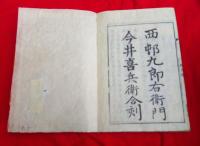 西邨九郎右衛門
今井喜兵衛合刻